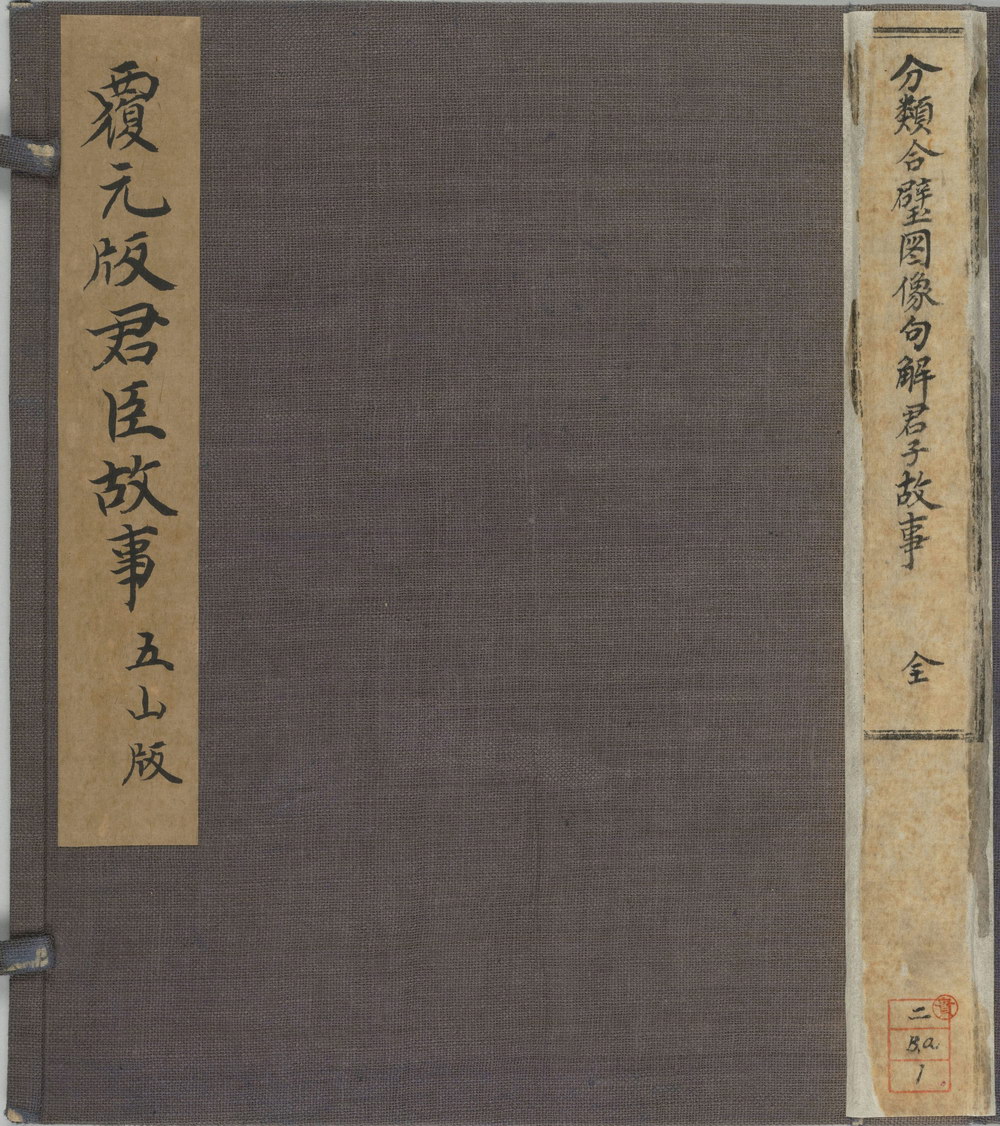 分類合璧図像句解君子故事
全
二
B.a.
1
覆元版君臣故事 五山版